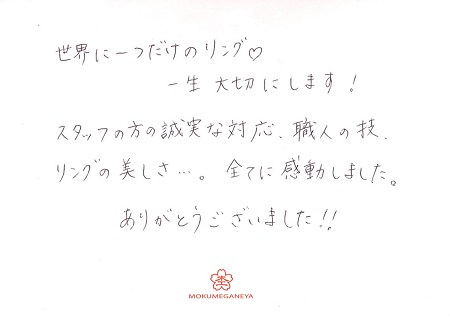 世界に一つだけのリング♡
一生 大切にします!
スタッフの方の誠実な対応、職人の技、
リングの美しさ…。全てに感動しました。
ありがとうございました!!
杢
MOKUMEGANEYA